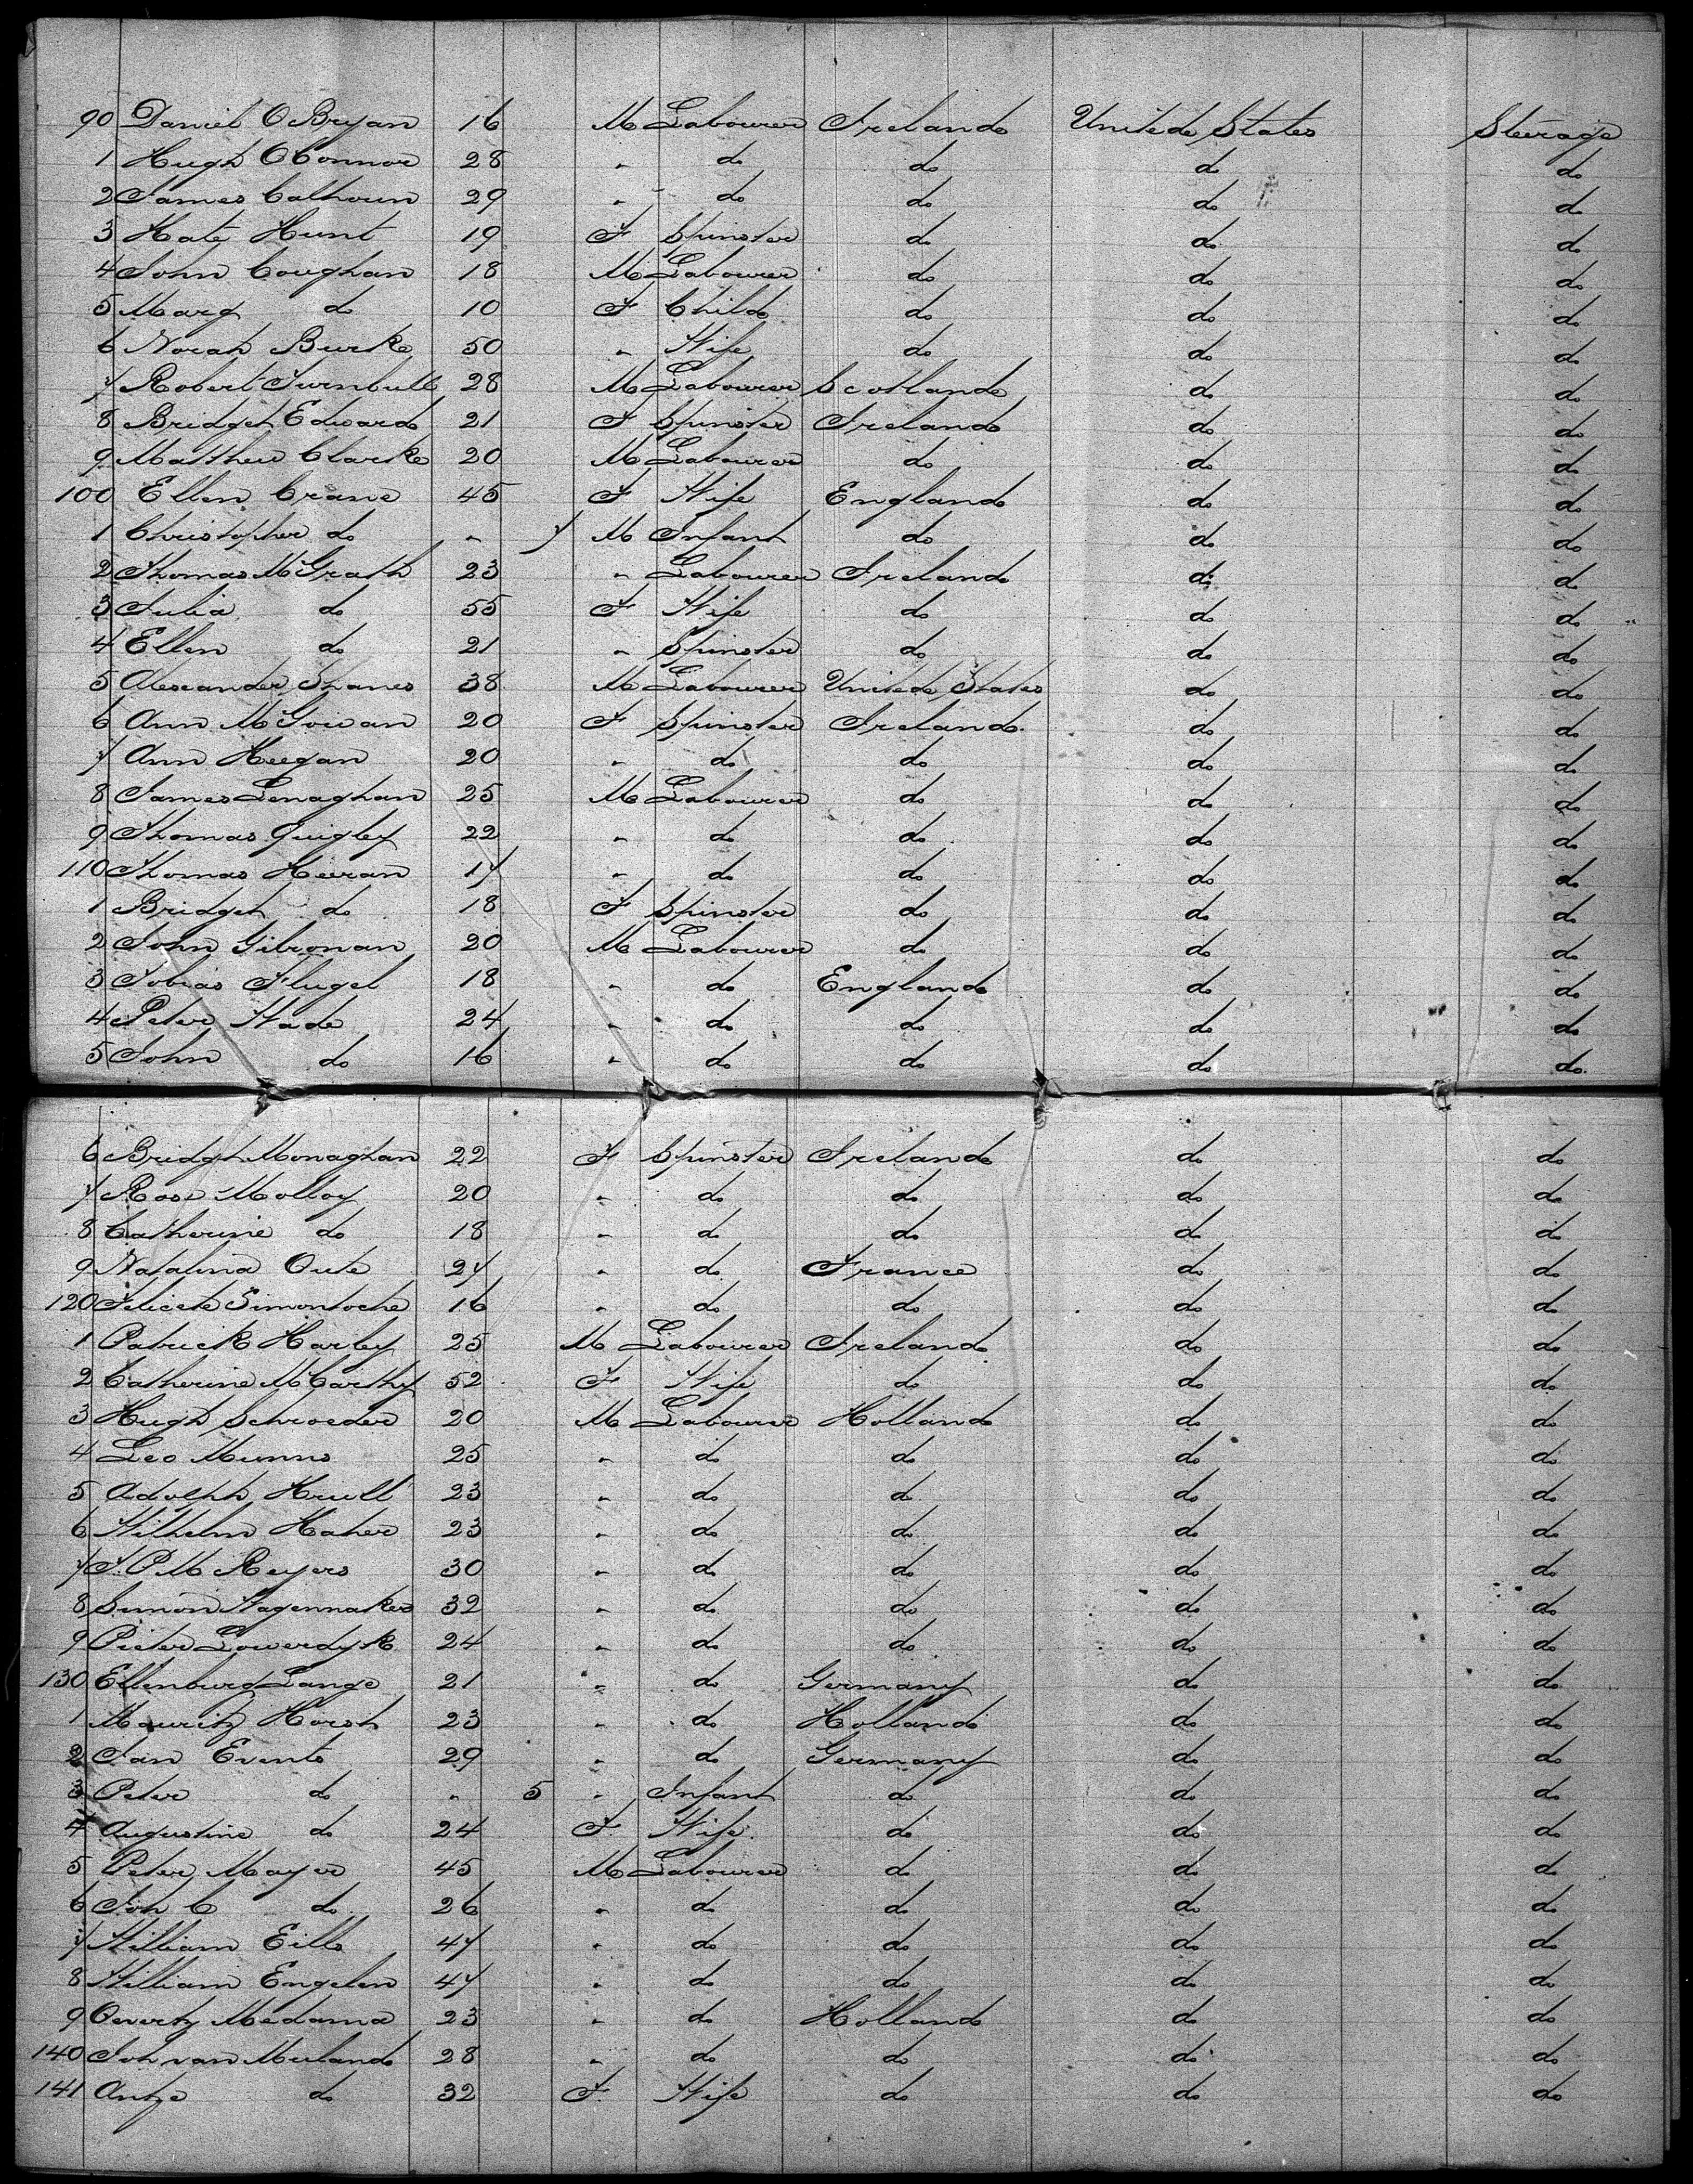 90 Daniel O'Bryan 16 M Labourer Ireland United States Steerage
1 Hugh O'Connor 28 " do do do do
2 James Calhoun 29 " do do do do
3 Kate Hunt 19 F Spinster do do do
4 John Coughan 18 M Labourer do do do
5 Marg do 10 F Child do do do
6 Norah Burke 50 " Wife do do do
7 Robert Turnbull 28 M Labourer Scotland do do
8 Bridget Edwards 21 F Spinster Ireland do do
9 Matthew Clarke 20 M Labourer do do do
100 Ellen Crane 45 F Wife England do do
1 Christopher do " 7 M Infant do do do
2 Thomas McGrath 23 " Labourer Ireland do do
3 Julia do 55 F Wife do do do
4 Ellen do 21 " Spinster do do do
5 Alexander Shanes 38 M Labourer United States do do
6 Ann McGowan 20 F Spinster Ireland do do
7 Ann Keegan 20 " do do do do
8 James Lenaghan 25 M Labourer do do do
9 Thomas Quigley 22 " do do do do
110 Thomas Keiran 17 " do do do do
1 Bridget do 18 F Spinster do do do
2 John Gibronan 20 M Labourer do do do
3 Tobias Flugel 18 " do England do do
4 Peter Wade 24 " do do do do
5 John do 16 " do do do do
6 Bridget Monaghan 22 F Spinster Ireland do do
7 Rose Molloy 20 " do do do do
8 Catherine do 18 " do do do do
9 Natalina Oute 27 " do France do do
120 Felicete Simontoche 16 " do do do do
1 Patrick Harley 25 M Labourer Ireland do do
2 Catherine McCarthy 52 F Wife do do do
3 Hugh Schroeder 20 M Labourer Holland do do
4 Leo Munns 25 " do do do do
5 Adolph Krull 23 " do do do do
6 Wilhelm Kaher 23 " do do do do
7 T. P. M. Reyers 30 " do do do do
8 Simon Wagenmaker 32 " do do do do
9 Pieter Lowerdyk 24 " do do do do
130 Ellenburg Lange 21 " do Germany do do
1 Mauritz Horsh 23 " do Holland do do
2 Jan Events 29 " do Germany do do
3 Peter do " 5 " Infant do do do
4 Augustine do 24 F Wife do do do
5 Peter Mayer 45 M Labourer do do do
6 Joh C do 26 " do do do do
7 William Eills 47 " do do do do
8 William Engelen 47 " do do do do
9 Medama 23 " do Holland do do
140 Joh van Meeland 28 " do do do do
141 Antje do 32 F Wife do do do